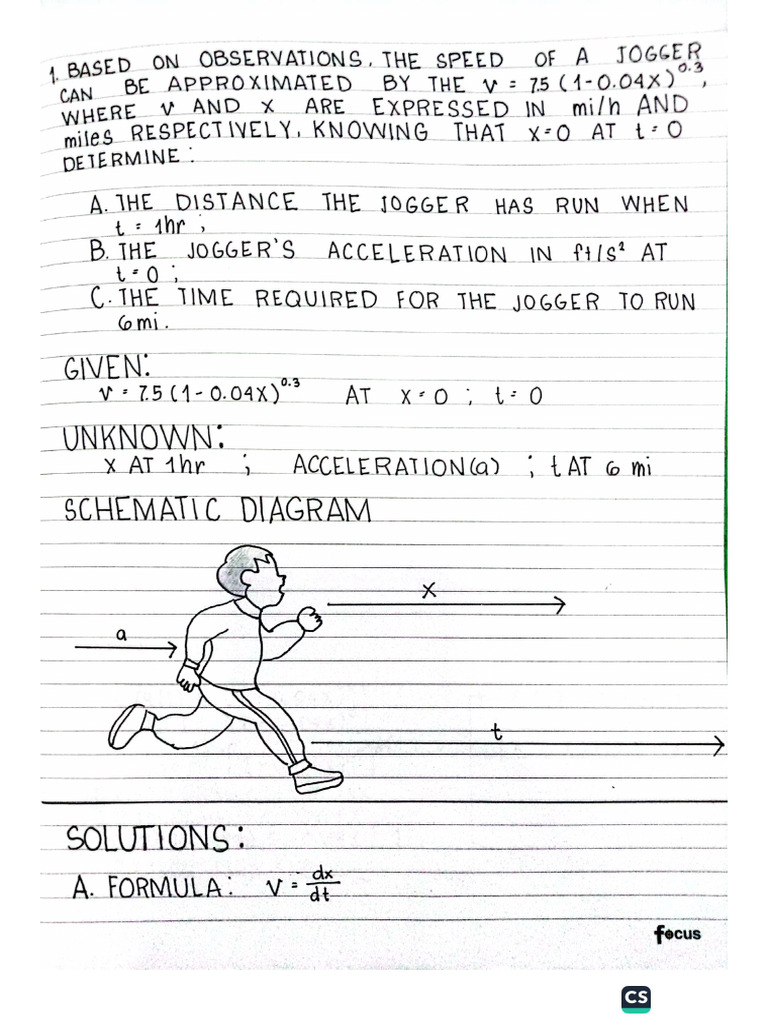 1. BASED ON OBSERVATIONS, THE SPEED OF A JOGGER
CAN BE APPROXIMATED BY THE v = 7.5 (1-0.04X)^0.3,
WHERE v AND X ARE EXPRESSED IN mi/h AND
miles RESPECTIVELY, KNOWING THAT X=0 AT t=0
DETERMINE:
A. THE DISTANCE THE JOGGER HAS RUN WHEN
t = 1hr ;
B. THE JOGGER'S ACCELERATION IN ft/s² AT
t=0 ;
C. THE TIME REQUIRED FOR THE JOGGER TO RUN
6mi.
GIVEN:
v = 7.5 (1-0.04X)^0.3 AT X=0 ; t=0
UNKNOWN:
X AT 1hr ; ACCELERATION(a) ; t AT 6 mi
SCHEMATIC DIAGRAM
X
a
t
SOLUTIONS:
A. FORMULA: V = dx/dt
focus
CS